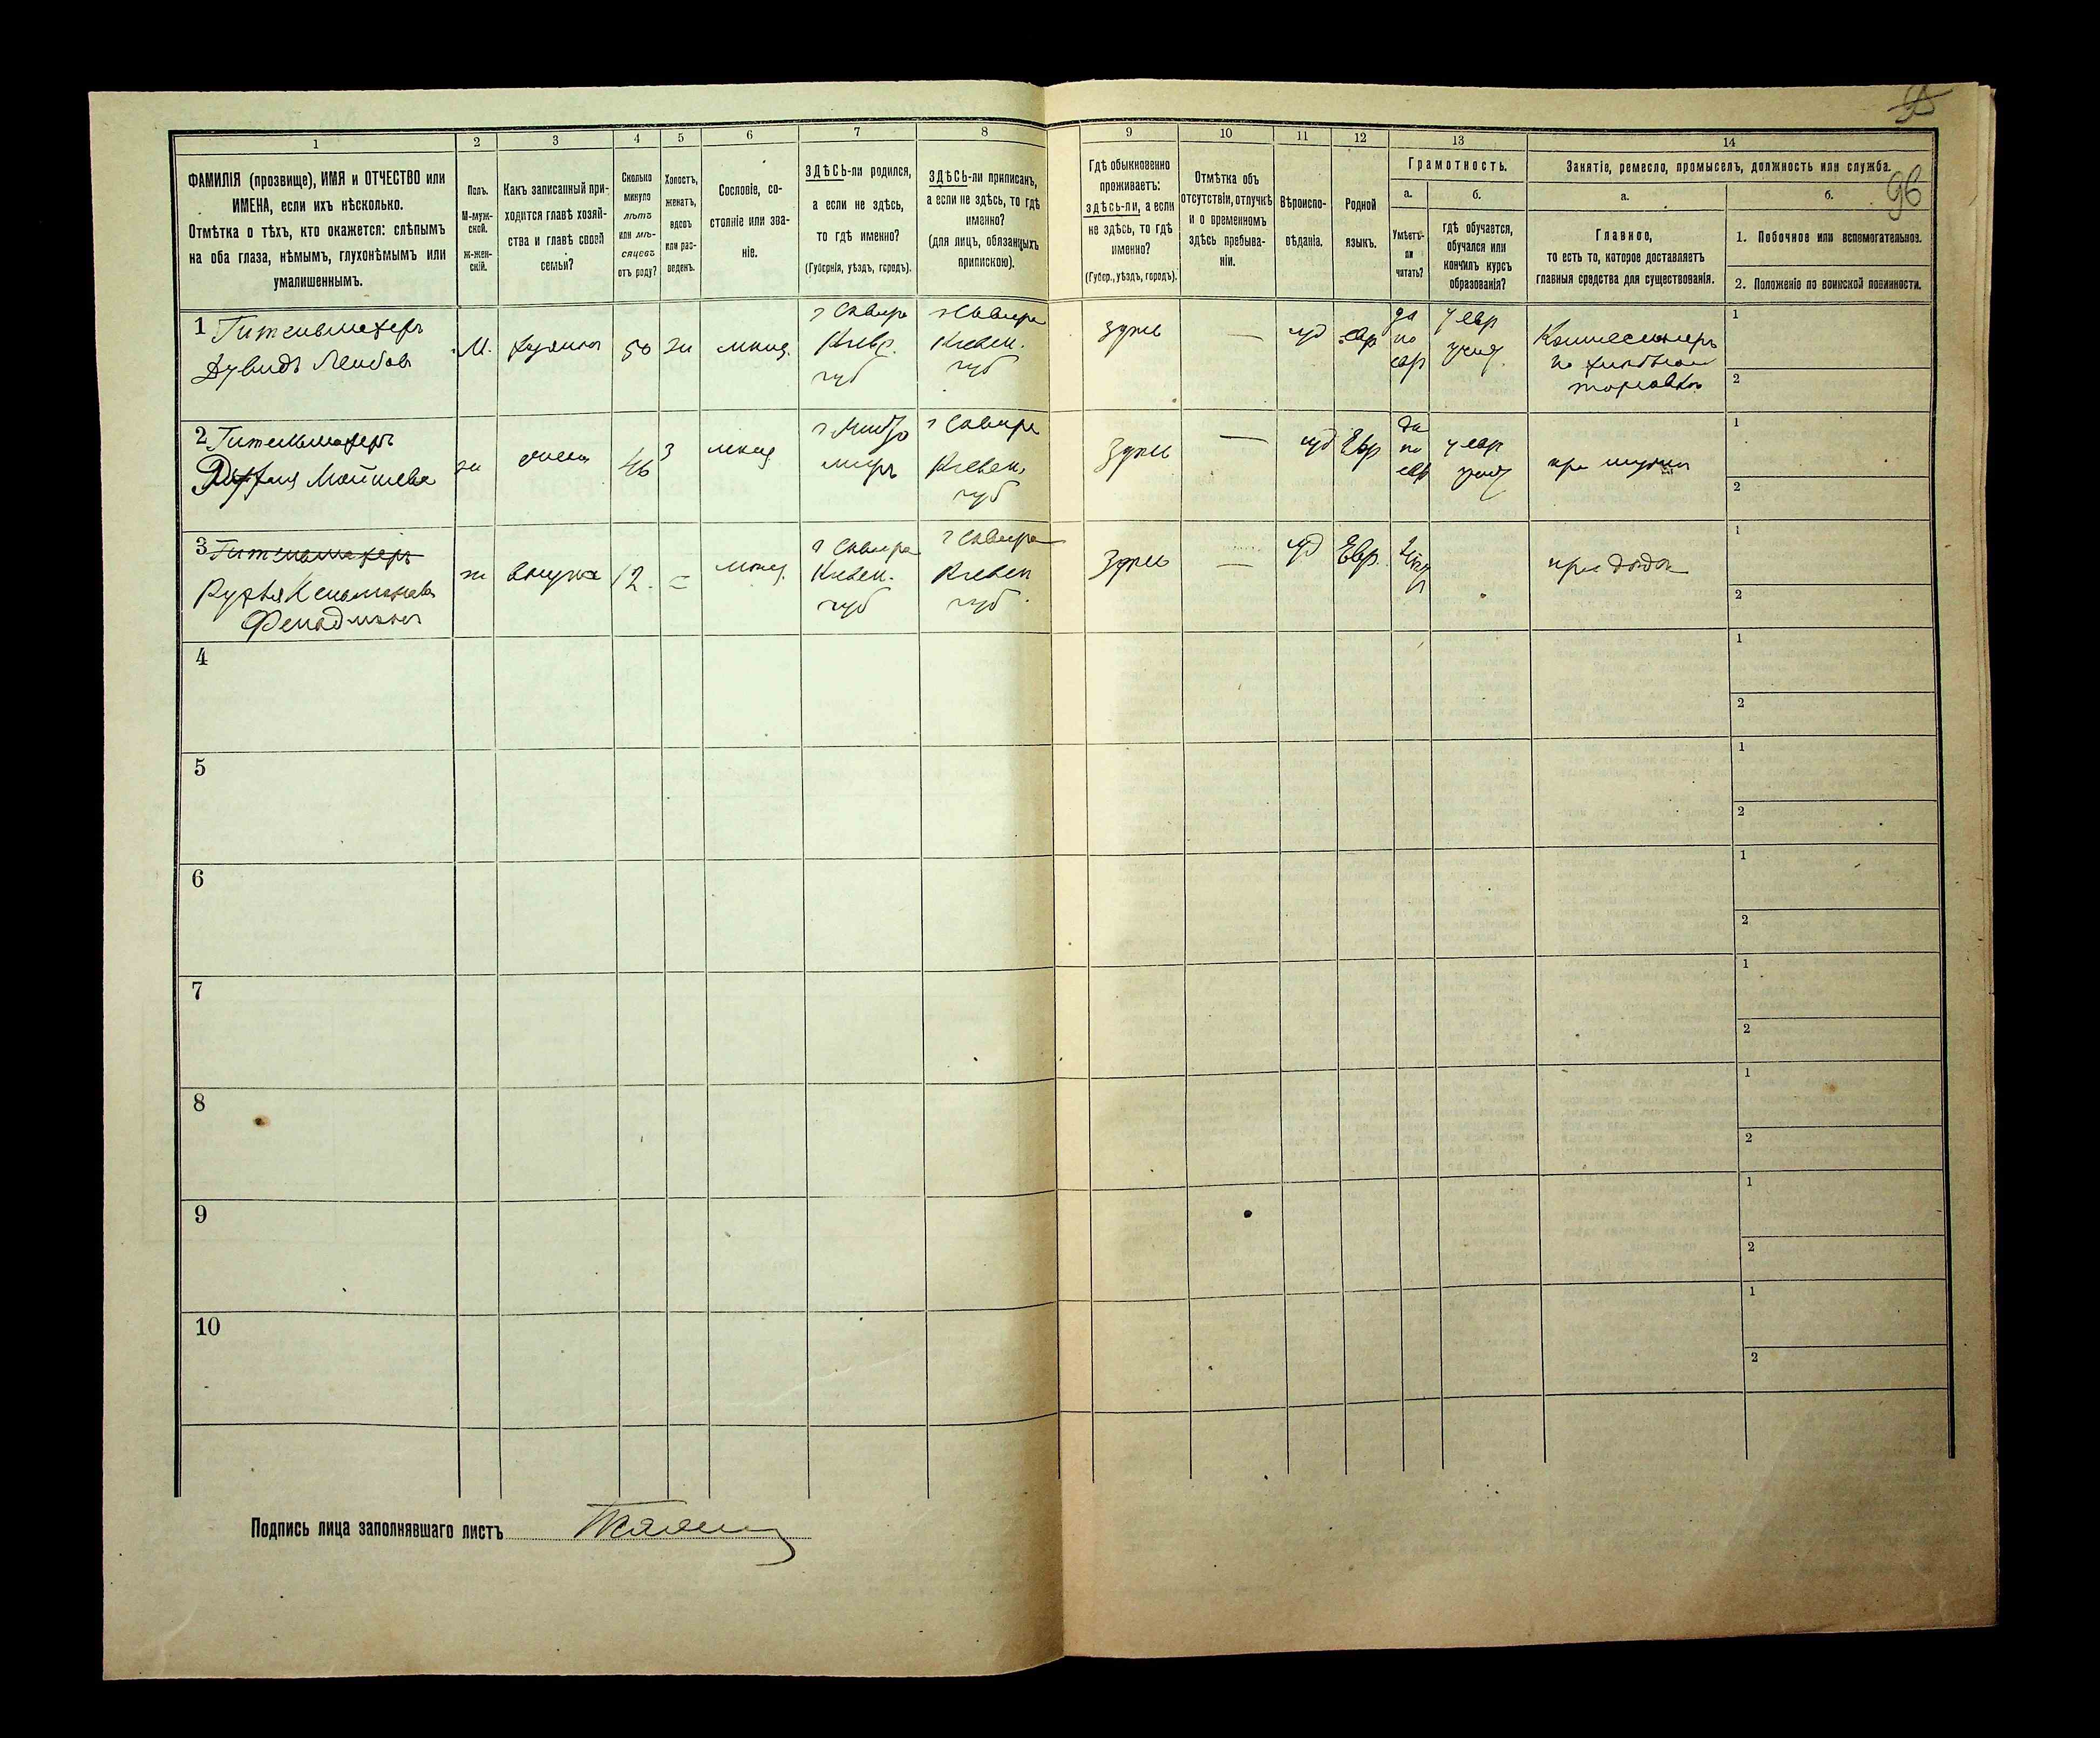 95
96
1
2
3
4
5
6
7
8
9
10
11
12
13
14
ФАМИЛІЯ (прозвище), ИМЯ и ОТЧЕСТВО или
ИМЕНА, если ихъ нѣсколько.
Отмѣтка о тѣхъ, кто окажется: слѣпымъ
на оба глаза, нѣмымъ, глухонѣмымъ или
умалишеннымъ.
Полъ.
М-муж-
ской.
ж-жен-
скій.
Какъ записанный при-
ходится главѣ хозяй-
ства и главѣ своей
семьи?
Сколько
минуло
лѣтъ
или мѣ-
сяцевъ
отъ роду?
Холостъ,
женатъ,
вдовъ
или раз-
веденъ.
Сословіе, со-
стояніе или зва-
ніе.
ЗДѢСЬ-ли родился,
а если не здѣсь,
то гдѣ именно?
(Губернія, уѣздъ, городъ).
ЗДѢСЬ-ли приписанъ,
а если не здѣсь, то гдѣ
именно?
(для лицъ, обязанныхъ
припискою).
Гдѣ обыкновенно
проживаетъ:
здѣсь-ли, а если
не здѣсь, то гдѣ
именно?
(Губер., уѣздъ, городъ).
Отмѣтка объ
отсутствіи, отлучкѣ
и о временномъ
здѣсь пребыва-
ніи.
Вѣроиспо-
вѣданіе.
Родной
языкъ.
Грамотность.
а.
Умѣетъ-
ли
читать?
б.
гдѣ обучается,
обучался или
кончилъ курсъ
образованія?
Занятіе, ремесло, промыселъ, должность или служба.
а.
Главное,
то есть то, которое доставляетъ
главныя средства для существованія.
б.
1. Побочное или вспомогательное.
2. Положеніе по воинской повинности.
1 Гительмахеръ
Дувидъ Лейбов
М. хозяинъ 50 жи мѣщ.
г Сквира
Кіев.
губ
г Сквира
Кіевск.
губ
здѣсь — іуд евр
да
по
евр
у евр
учит
Комиссіонеръ
по хлѣбной
торговлѣ
1
2
2 Гительмахеръ
Мойшева
жи жена 46 з мѣщ
г Сквира
Кіевск.
губ
здѣсь — іуд Евр
да
по
евр
у евр
учит
при мужѣ
1
2
3 Гительмахеръ
Рухля
Фельдманъ
ж внучка 12. = мѣщ.
г Сквира
Кіевск.
губ
г Сквира
Кіевск
губ.
здѣсь іуд Евр.
при дѣдѣ
1
2
4
1
2
5
1
2
6
1
2
7
1
2
8
1
2
9
1
2
10
1
2
Подпись лица заполнявшаго листъ